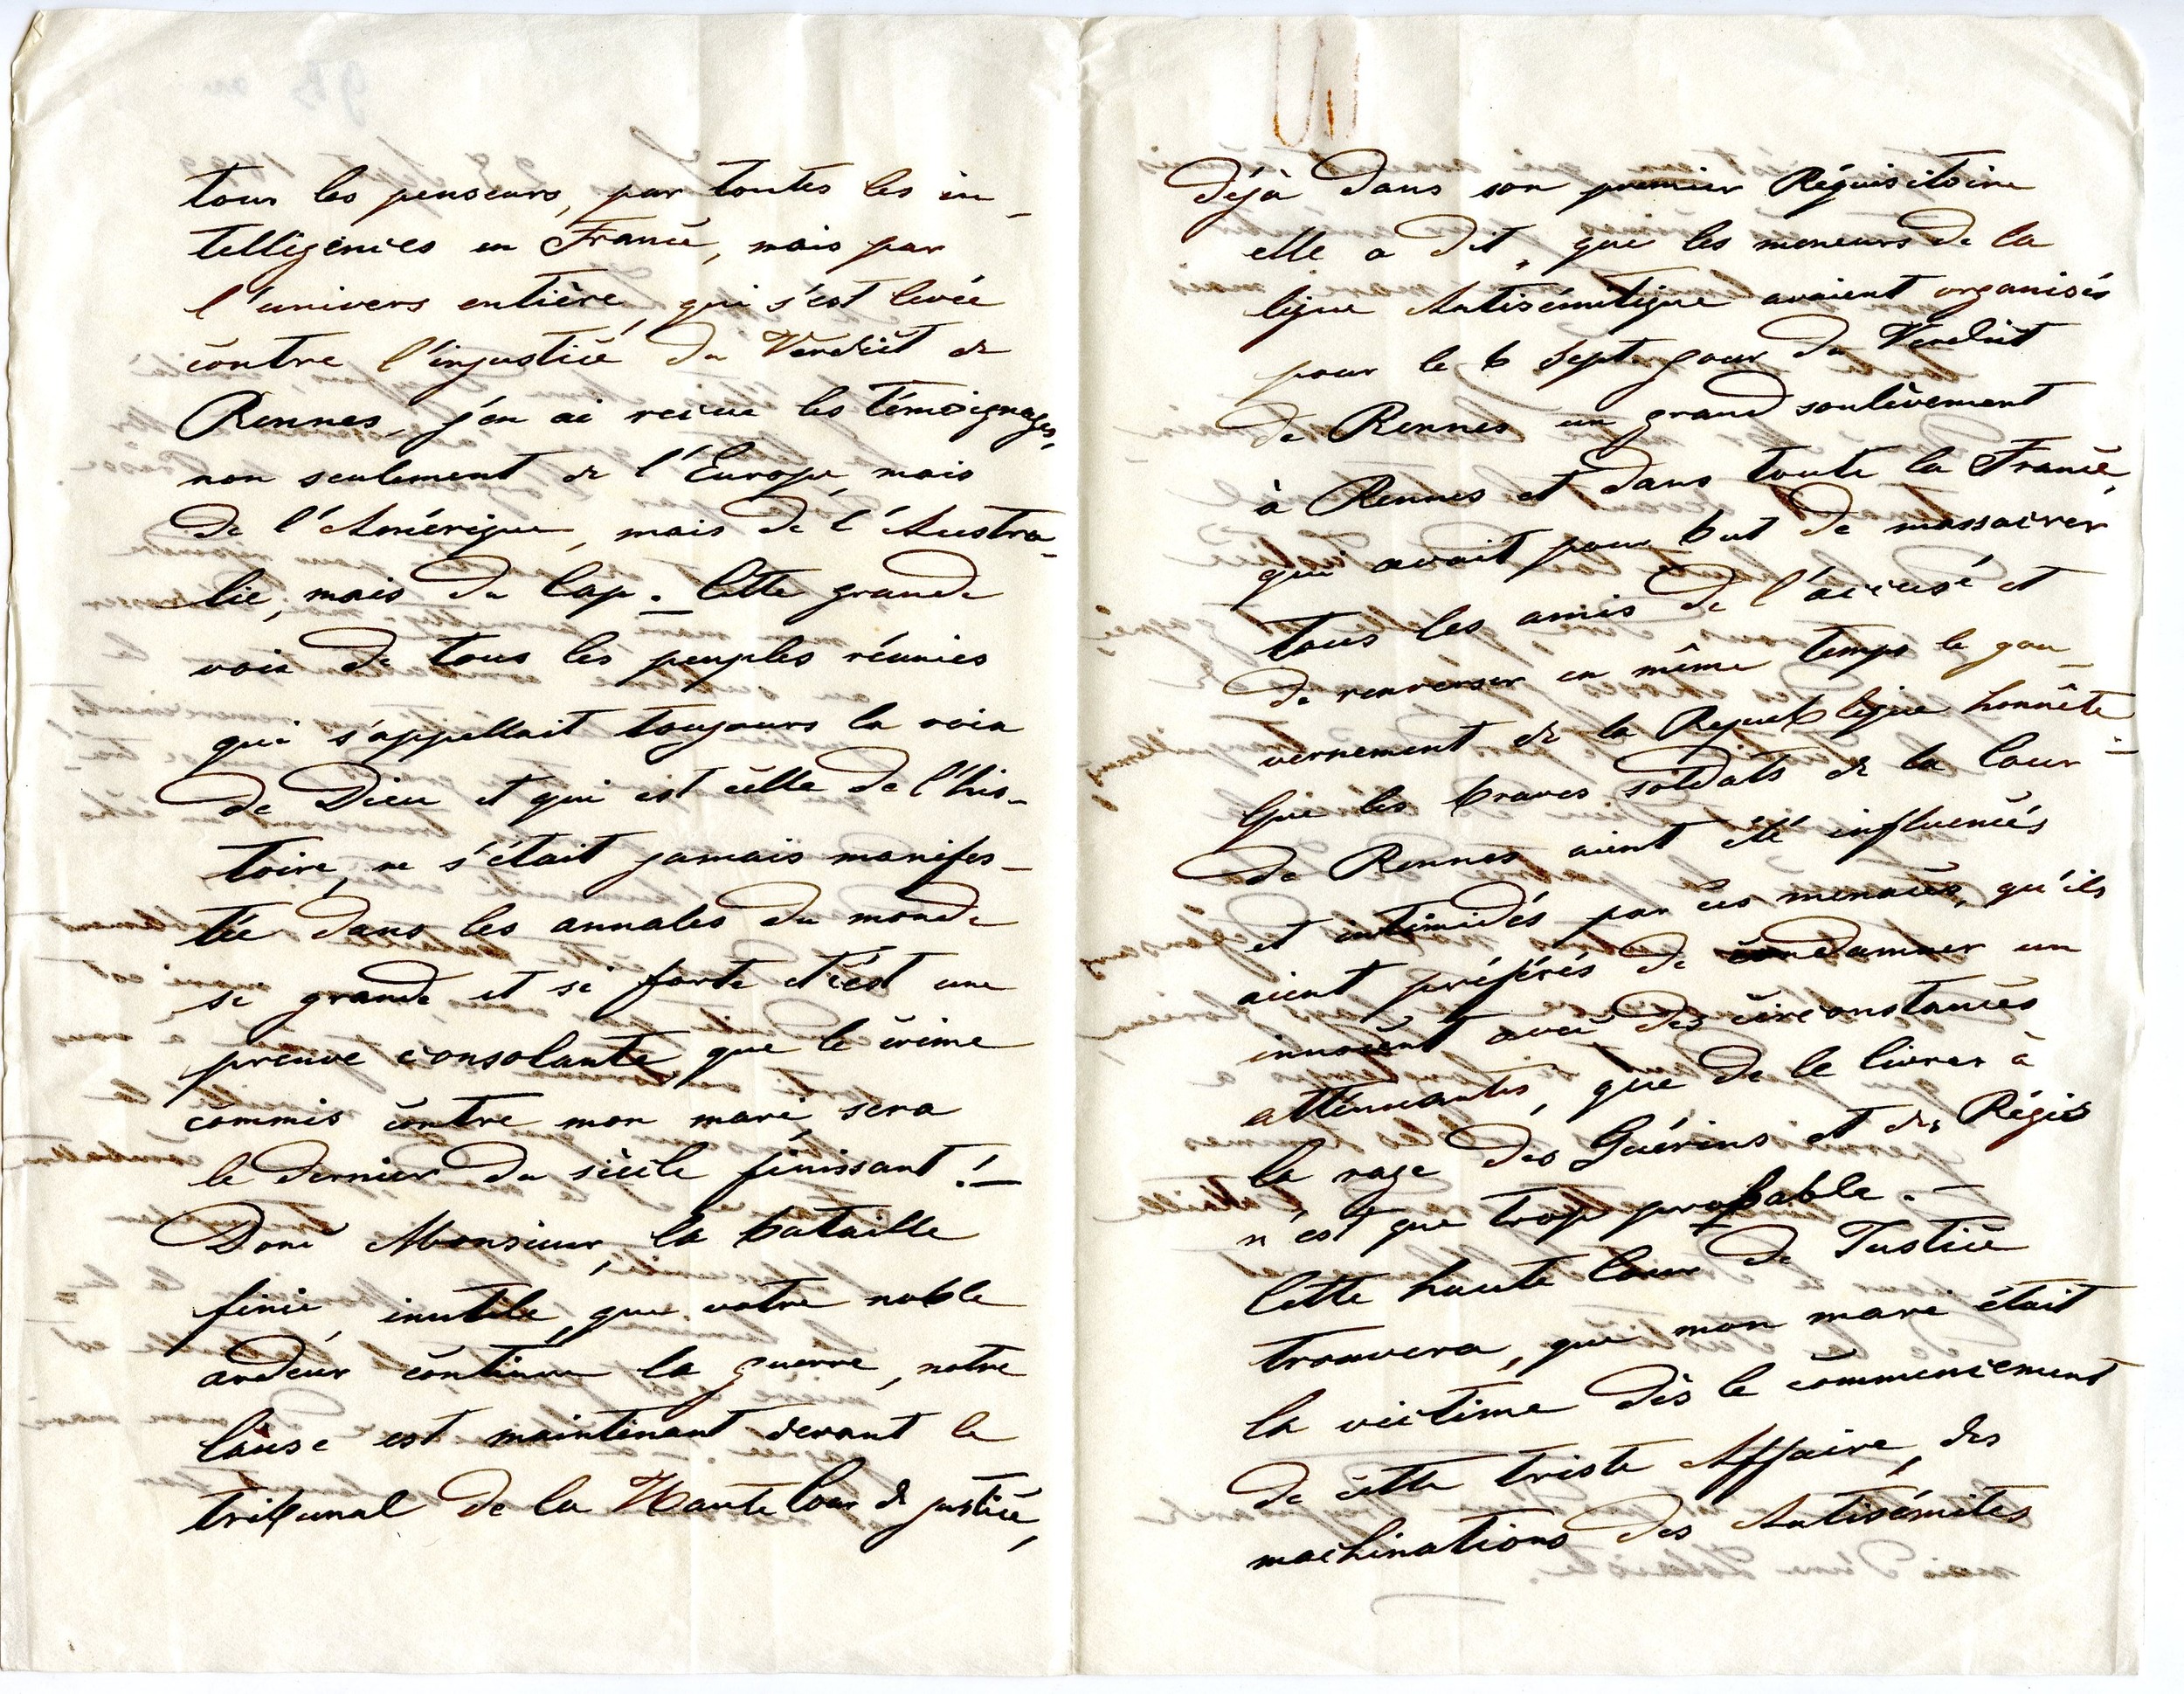 tous les penseurs, par toutes les in-
telligences en France, mais par
l'univers entière, qui s'est levée
contre l'injustice du Verdict de
Rennes, j'en ai recue les témoignages,
non seulement de l'Europe, mais
de l'Amérique, mais de l'Austra-
lie, mais du Cap. — Cette grande
voix de tous les peuples réunies
qui s'appellait toujours la voix
de Dieu et qui est celle de l'his-
toire, ne s'était jamais manifes-
tée dans les annales du monde
si grande et si forte et c'est une
preuve consolante, que le crime
commis contre mon mari, sera
le dernier du siècle finissant! —
Donc Monsieur, la bataille
finie, inutile, que votre noble
ardeur continue la guerre, notre
Cause est maintenant devant le
tribunal de la Haute Cour de justice,
déjà dans son premier Réquisitoire
elle a dit, que les meneurs de la
ligue Antisémitique avaient organisés
pour le 6 Sept. jour du Verdict
de Rennes un grand soulèvement
à Rennes et dans toute la France,
qui avait pour but de massacrer
tous les amis de l'accusé et
de renverser en même temps le gou-
vernement de la République honnête. —
Que les braves soldats de la Cour
de Rennes aient été influencés
et intimidés par ces menaces, qu'ils
aient préférés de condamner un
innocent avec des circonstances
atténuantes, que de le livrer à
la rage des Guérins et des Régis
n'est que trop probable. —
Cette haute Cour de Justice
trouvera, que mon mari était
la victime dès le commencement
de cette triste Affaire, des
machinations des Antisémites